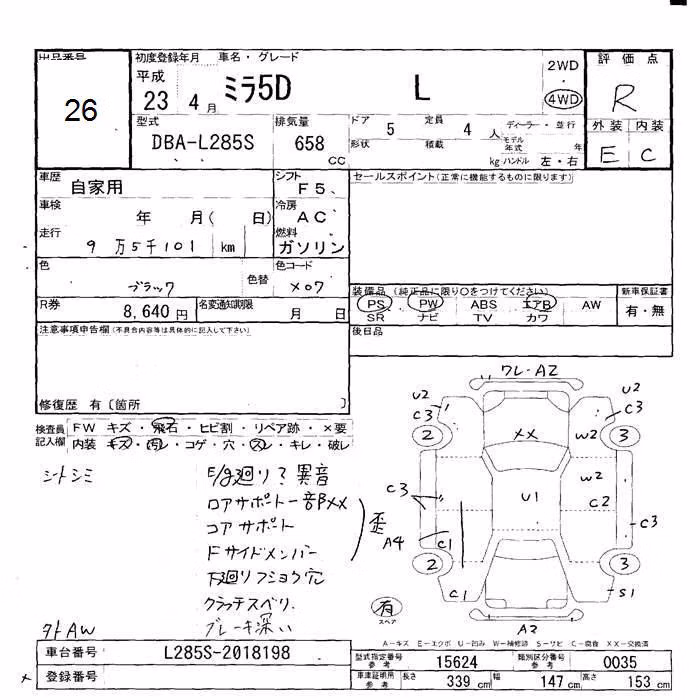 出品番号
26
初度登録年月
平成
23 4月
車名・グレード
ミラ5D L
2WD
・
4WD
評価点
R
外装 内装
E C
型式
DBA-L285S
排気量
658
CC
ドア
5
定員
4
人
形状
積載
kg
ディーラー・並行
モデル年式
年
ハンドル 左・右
車歴
自家用
シフト
F5
セールスポイント(正常に機能するものに限ります)
車検
年 月( 日)
冷房
AC
走行
9万5千101 km
燃料
ガソリン
色
ブラック
色替
色コード
X07
装備品 (純正品に限り○をつけてください)
PS PW ABS エアB AW
SR ナビ TV カワ
新車保証書
有・無
R券
8,640円
名変通知期限
月 日
後日品
注意事項申告欄(不具合内容等は具体的に記入して下さい)
修復歴 有〔箇所 〕
検査員記入欄
FW キズ・飛石・ヒビ割・リペア跡・×要
内装 キズ・汚レ・コゲ・穴・スレ・キレ・破レ
シートシミ
E/g廻り?異音
ロアサポート一部XX
コアサポート
Fサイドメンバー
歪
下廻りフショク穴
クラッチスベリ
ブレーキ深い
外AW
ワレ・A2
U2
C3
2
XX
U2
C3
3
W2
W2
C3
U1
C2
C3
A4
C1
2
3
C1
S1
有
スペア
A2
A-キズ E-エクボ U-凹み W-補修跡 S-サビ C-腐食 XX-交換済
車台番号
L285S-2018198
登録番号
型式指定番号
参考
15624
類別区分番号
参考
0035
車庫証明用
参考
長さ
339 cm
幅
147 cm
高さ
153 cm